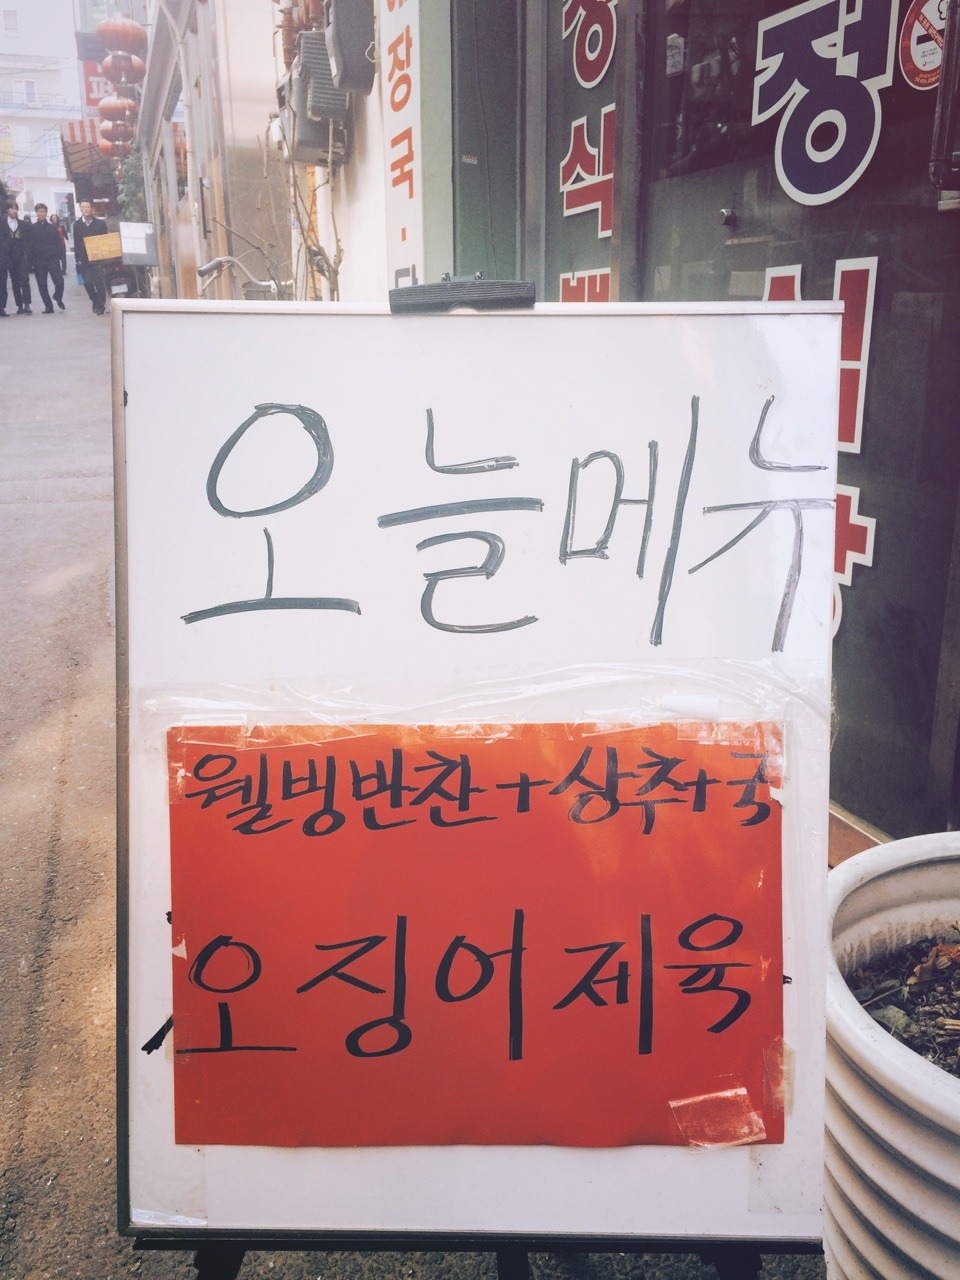 오늘메뉴
웰빙반찬+상추+국
오징어제육
정식
정식
장국